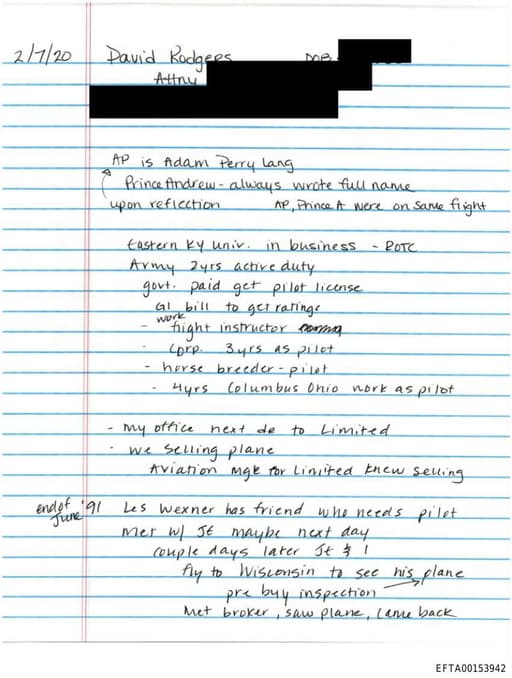 2/7/20 David Rodgers DOB
Attny
AP is Adam Perry Lang
Prince Andrew - always wrote full name
upon reflection AP, Prince A were on same flight
Eastern KY univ. in business - ROTC
Army 2yrs active duty
govt. paid get pilot license
GI bill to get ratings
work
- flight instructor
- Corp. 3yrs as pilot
- horse breeder - pilot
- 4yrs Columbus Ohio work as pilot
- my office next de to Limited
- we selling plane
Aviation mgr for Limited knew selling
end of June '91 Les Wexner has friend who needs pilot
Met w/ JE maybe next day
couple days later JE & I
fly to Wisconsin to see his plane
pre buy inspection
Met broker, saw plane, came back
EFTA00153942